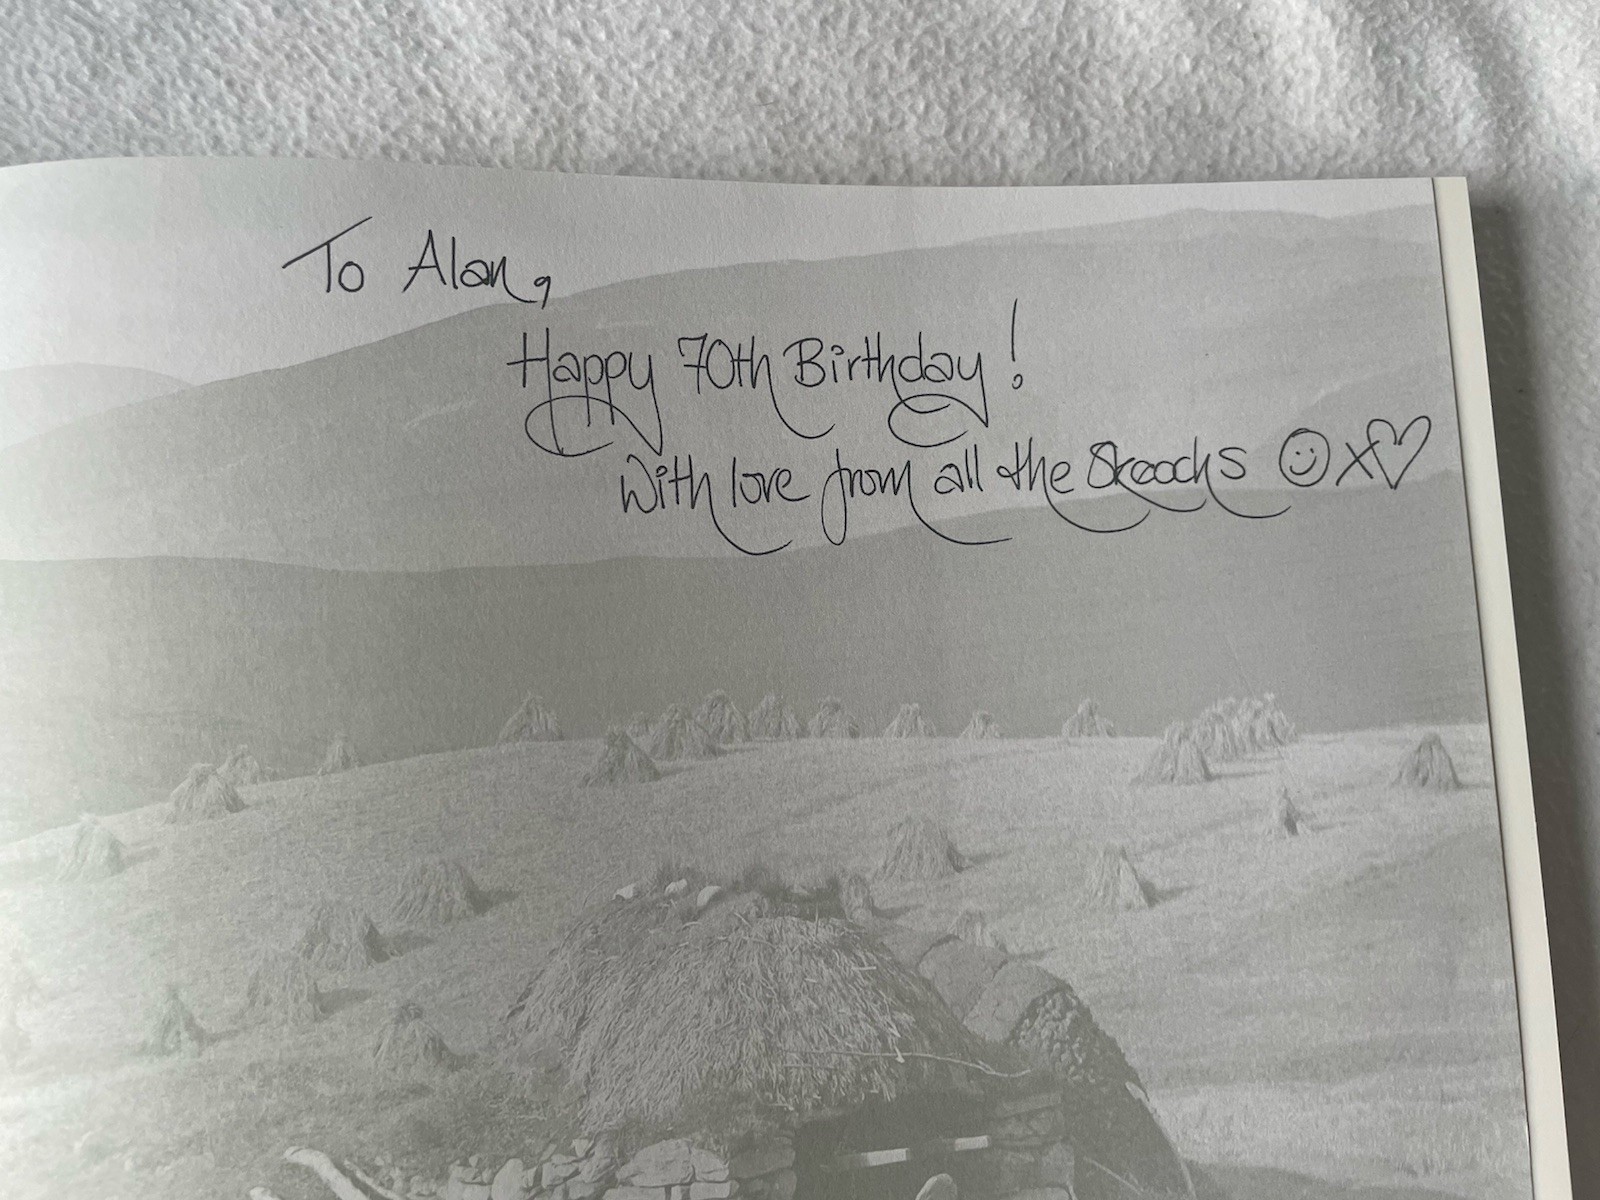 To Alan,
Happy 70th Birthday!
With love from all the Skeochs ☺x♡